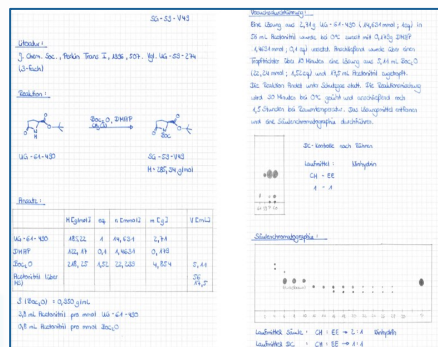 SG-S3-V49
Literatur:
J. Chem. Soc., Perkin Trans I, 1996, 507. Vgl. UG-S3-274
(3-fach)
Reaktion:
Boc₂O, DMAP
UG-61-430
SG-S3-V49
M=285,34 g/mol
Ansatz:
M [g/mol] eq n [mmol] m [g] V [mL]
UG-61-430 185,22 1 14,631 2,71
DMAP 122,17 0,1 1,4631 0,179
Boc₂O 218,25 1,52 22,239 4,854 5,11
Acetonitril (über
56
17,5
(Boc₂O) = 0,950 g/mL
3,8 mL Acetonitril pro mmol UG-61-430
0,8 mL Acetonitril pro mmol Boc₂O
Versuchsdurchführung:
Eine Lösung aus 2,71 g UG-61-430 (14,631 mmol; 1 eq) in
56 mL Acetonitril wurde bei 0°C zuerst mit 0,179 g DMAP
1,4631 mmol; 0,1 eq) versetzt. Anschließend wurde über einen
Tropftrichter über 10 Minuten eine Lösung aus 5,11 mL Boc₂O
(22,24 mmol; 1,52 eq) und 17,5 mL Acetonitril zugetropft.
Die Reaktion findet unter Schutzgas statt. Die Reaktionslösung
wird 30 Minuten bei 0°C gerührt und anschließend noch
1,5 Stunden bei Raumtemperatur. Das Lösungsmittel entfernen
und eine Säulenchromatographie durchführen.
DC-Kontrolle nach Rühren
Laufmittel: Ninhydrin
CH : EE
1 : 1
Säulenchromatographie:
Laufmittel Säule: CH : EE → 2:1 Ninhydrin
Laufmittel DC : CH : EE → 1:1